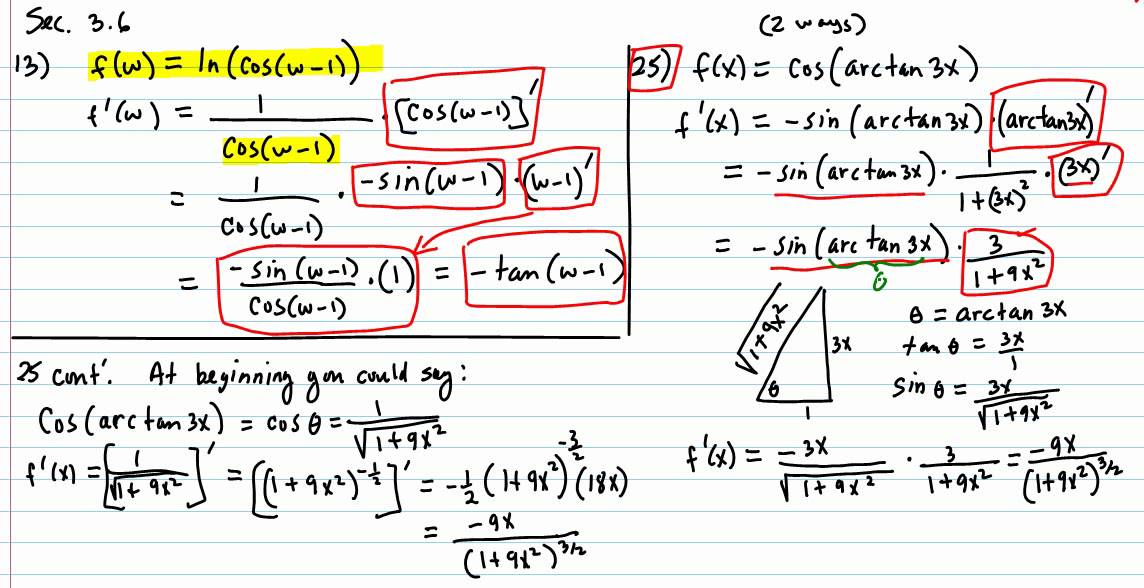 Sec. 3.6
13) f(w) = ln(cos(w-1))
f'(w) = 1/cos(w-1) · [cos(w-1)]'
= 1/cos(w-1) · -sin(w-1) · (w-1)'
= -sin(w-1)/cos(w-1) · (1) = -tan(w-1)
(2 ways)
25) f(x) = cos(arctan 3x)
f'(x) = -sin(arctan 3x) · (arctan 3x)'
= -sin(arctan 3x) · 1/1+(3x)² · (3x)'
= -sin(arc tan 3x) · 3/1+9x²
θ
√1+9x²
3x
θ
1
θ = arctan 3x
tan θ = 3x/1
sin θ = 3x/√1+9x²
f'(x) = -3x/√1+9x² · 3/1+9x² = -9x/(1+9x²)^3/2
25 cont'. At beginning you could say:
Cos(arctan 3x) = cos θ = 1/√1+9x²
f'(x) = [1/√1+9x²]' = [(1+9x²)^-1/2]' = -1/2 (1+9x²)^-3/2 (18x)
= -9x/(1+9x²)^3/2